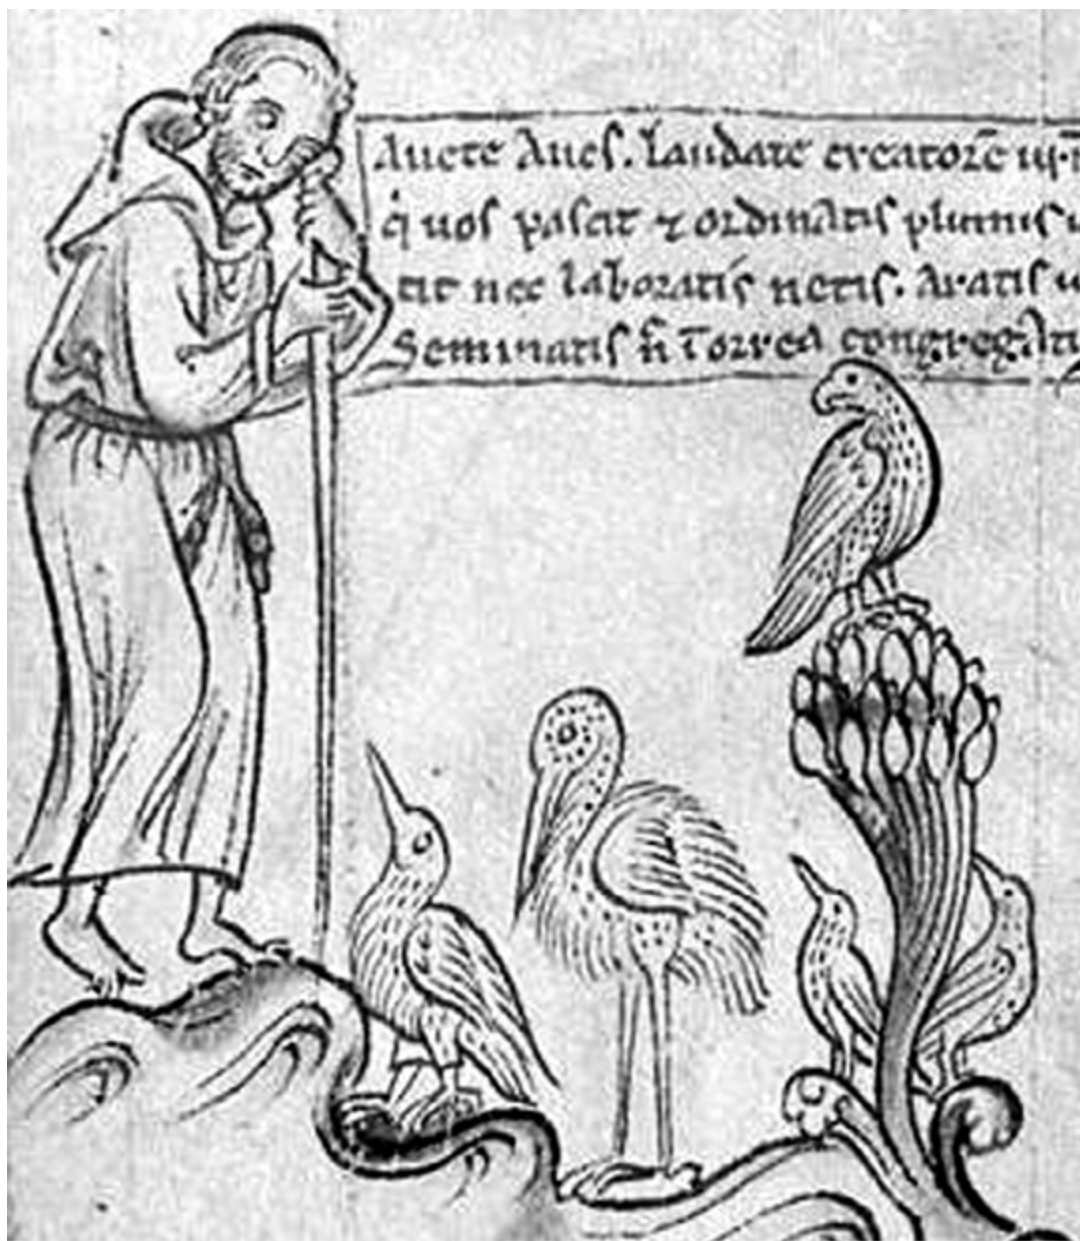 Auete Aues. laudate creatorē ur̄
q̇ uos pascit ⁊ ordinatis plumis
tit nec laboratis netis. Aratis u
Seminatis n̄ ī orrea congregati